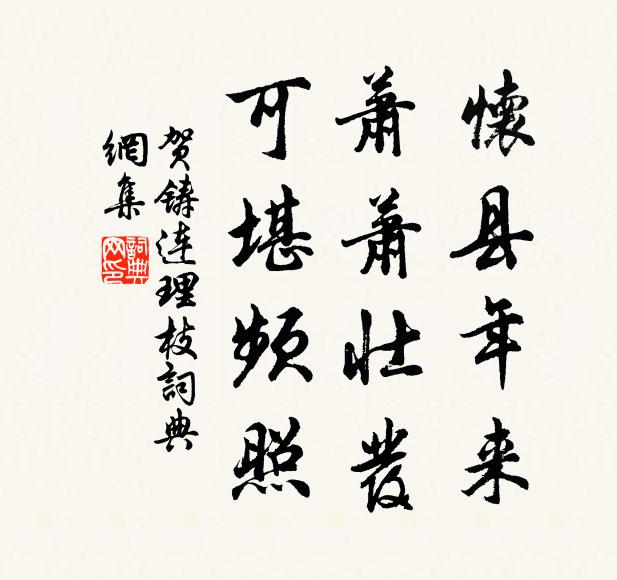 懷县年来
萧萧壮發
可堪频照
贺鑄連理枝詞典
網集
詞典網印